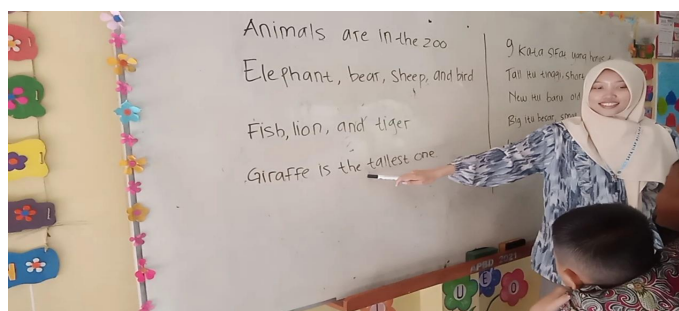 Animals are in the zoo
Elephant, bear, Sheep, and bird
Fish, lion, and tiger
Giraffe is the tallest one.
9 Kata sifat yang
Tall itu tinggi, short
New itu baru old
Big itu besar,
U E O